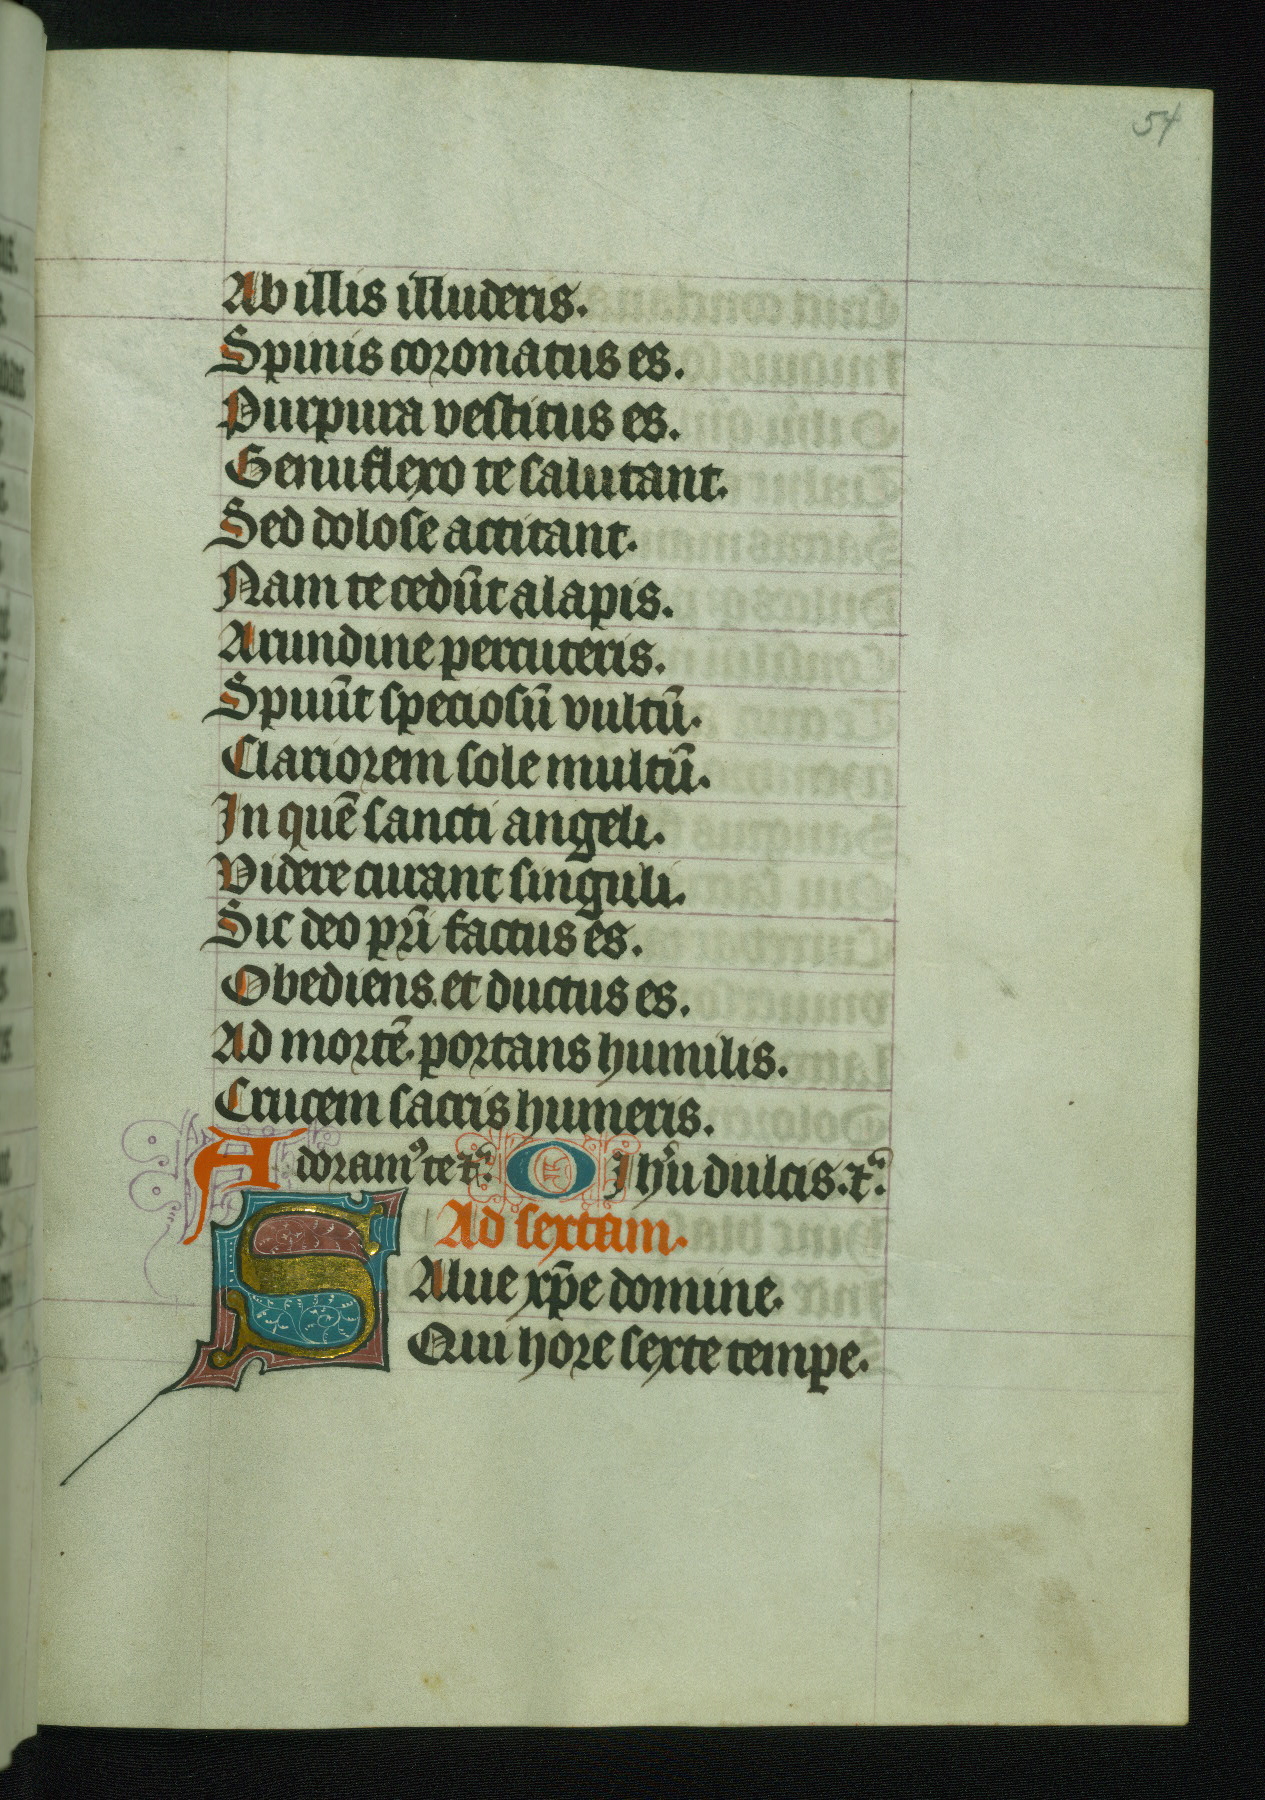 54
Ab illis illuderis.
Spinis coronatus es.
Purpura vestitus es.
Genuflexo te salutant.
Sed dolose actitant.
Nam te cedūt alapis.
Arundine percuteris.
Spuūt speciosū vultū.
Clariorem sole multū.
In quē sancti angeli.
Videre curant singuli.
Sic deo pr̄i factus es.
Obediens. et ductus es.
Ad mortē. portans humilis.
Crucem sacris humeris.
Adoramꝰ te ⁊c̃. O Ihū dulcis. ⁊c̃.
Ad sextam.
Salue xp̄e domine.
Qui hore sexte tempe.